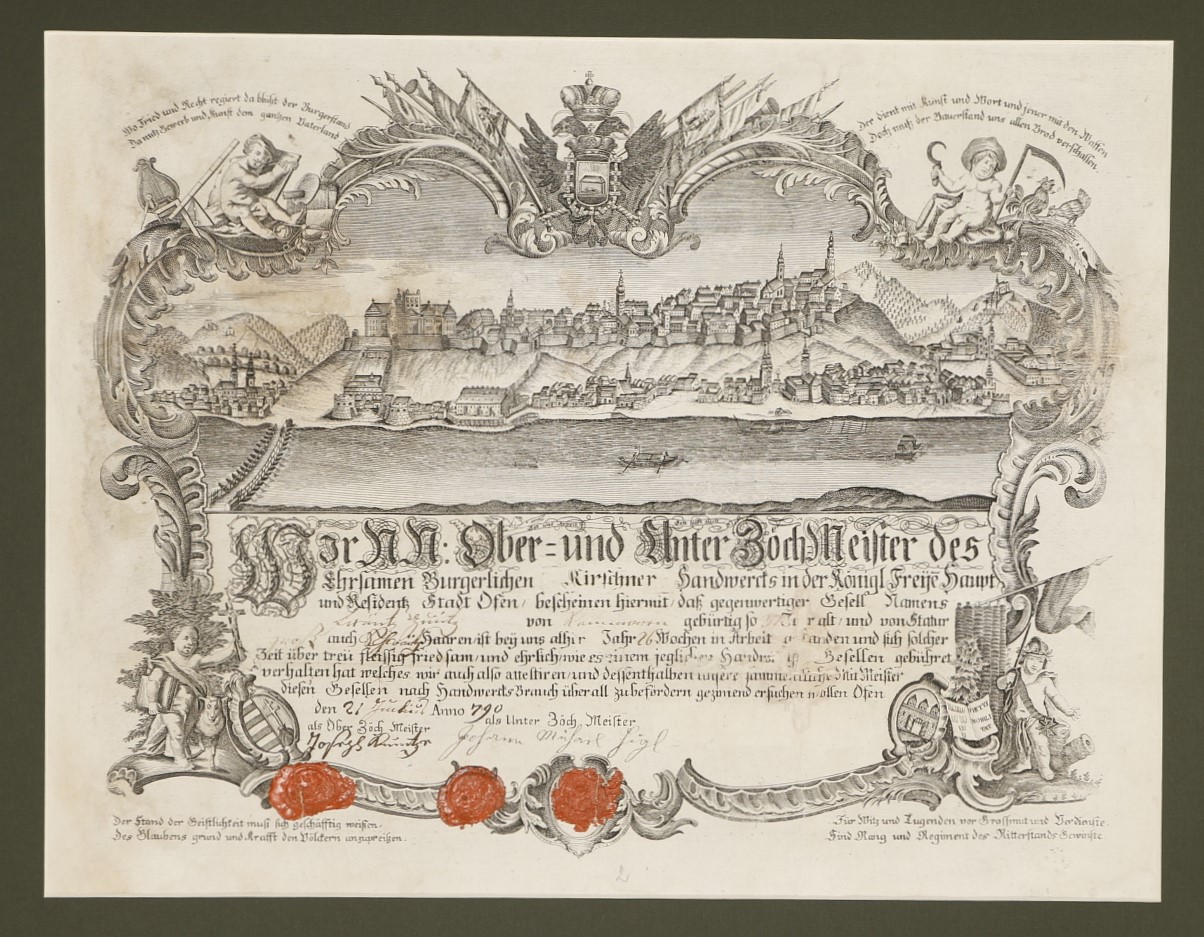 Wo Fried und Recht regiert da blüht der Burgerstand
Da nutz Gewerb und Kunst dem gantzen Vaterland
Der dient mit Kunst und Wort und jener mit den Waffen
Doch muß der Bauerstand uns allen Brod verschaffen.
Wir N N: Ober= und Unter Zöch Meister des
Ehrsamen Burgerlichen Kirschner Handwercks in der Königl Freÿe Haupt
und Residentz Stadt Ofen / bescheinen hiermit / daß gegenwertiger Gesell Namens
von gebürtig so alt / und von Statur
auch Haaren ist beÿ uns alhir Jahr 26 Wochen in Arbeit und sich solcher
Zeit über treü fleissig friedsam / und ehrlich / wie es einem jeglichen Gesellen gebühret
verhalten hat welches wir auch also attestiren / und dessenthalben Mit Meister
diesen Gesellen nach Handwercks Brauch über all zu befördern geziemend ersuchen wollen Ofen
den 21 Anno 790
als Ober Zöch Meister
als Unter Zöch Meister
Joseph
Johann
VIRTU
NOBILI
TAT
Der Stand der Geistlichkeit muß sich geschäfftig weißen.
Des Glaubens grund und Krafft den Völckern anzupreißen.
Für Witz und Tugenden vor Grossmut und Verdienste.
Sind Rang und Regiment des Ritterstands Gewinste.
2